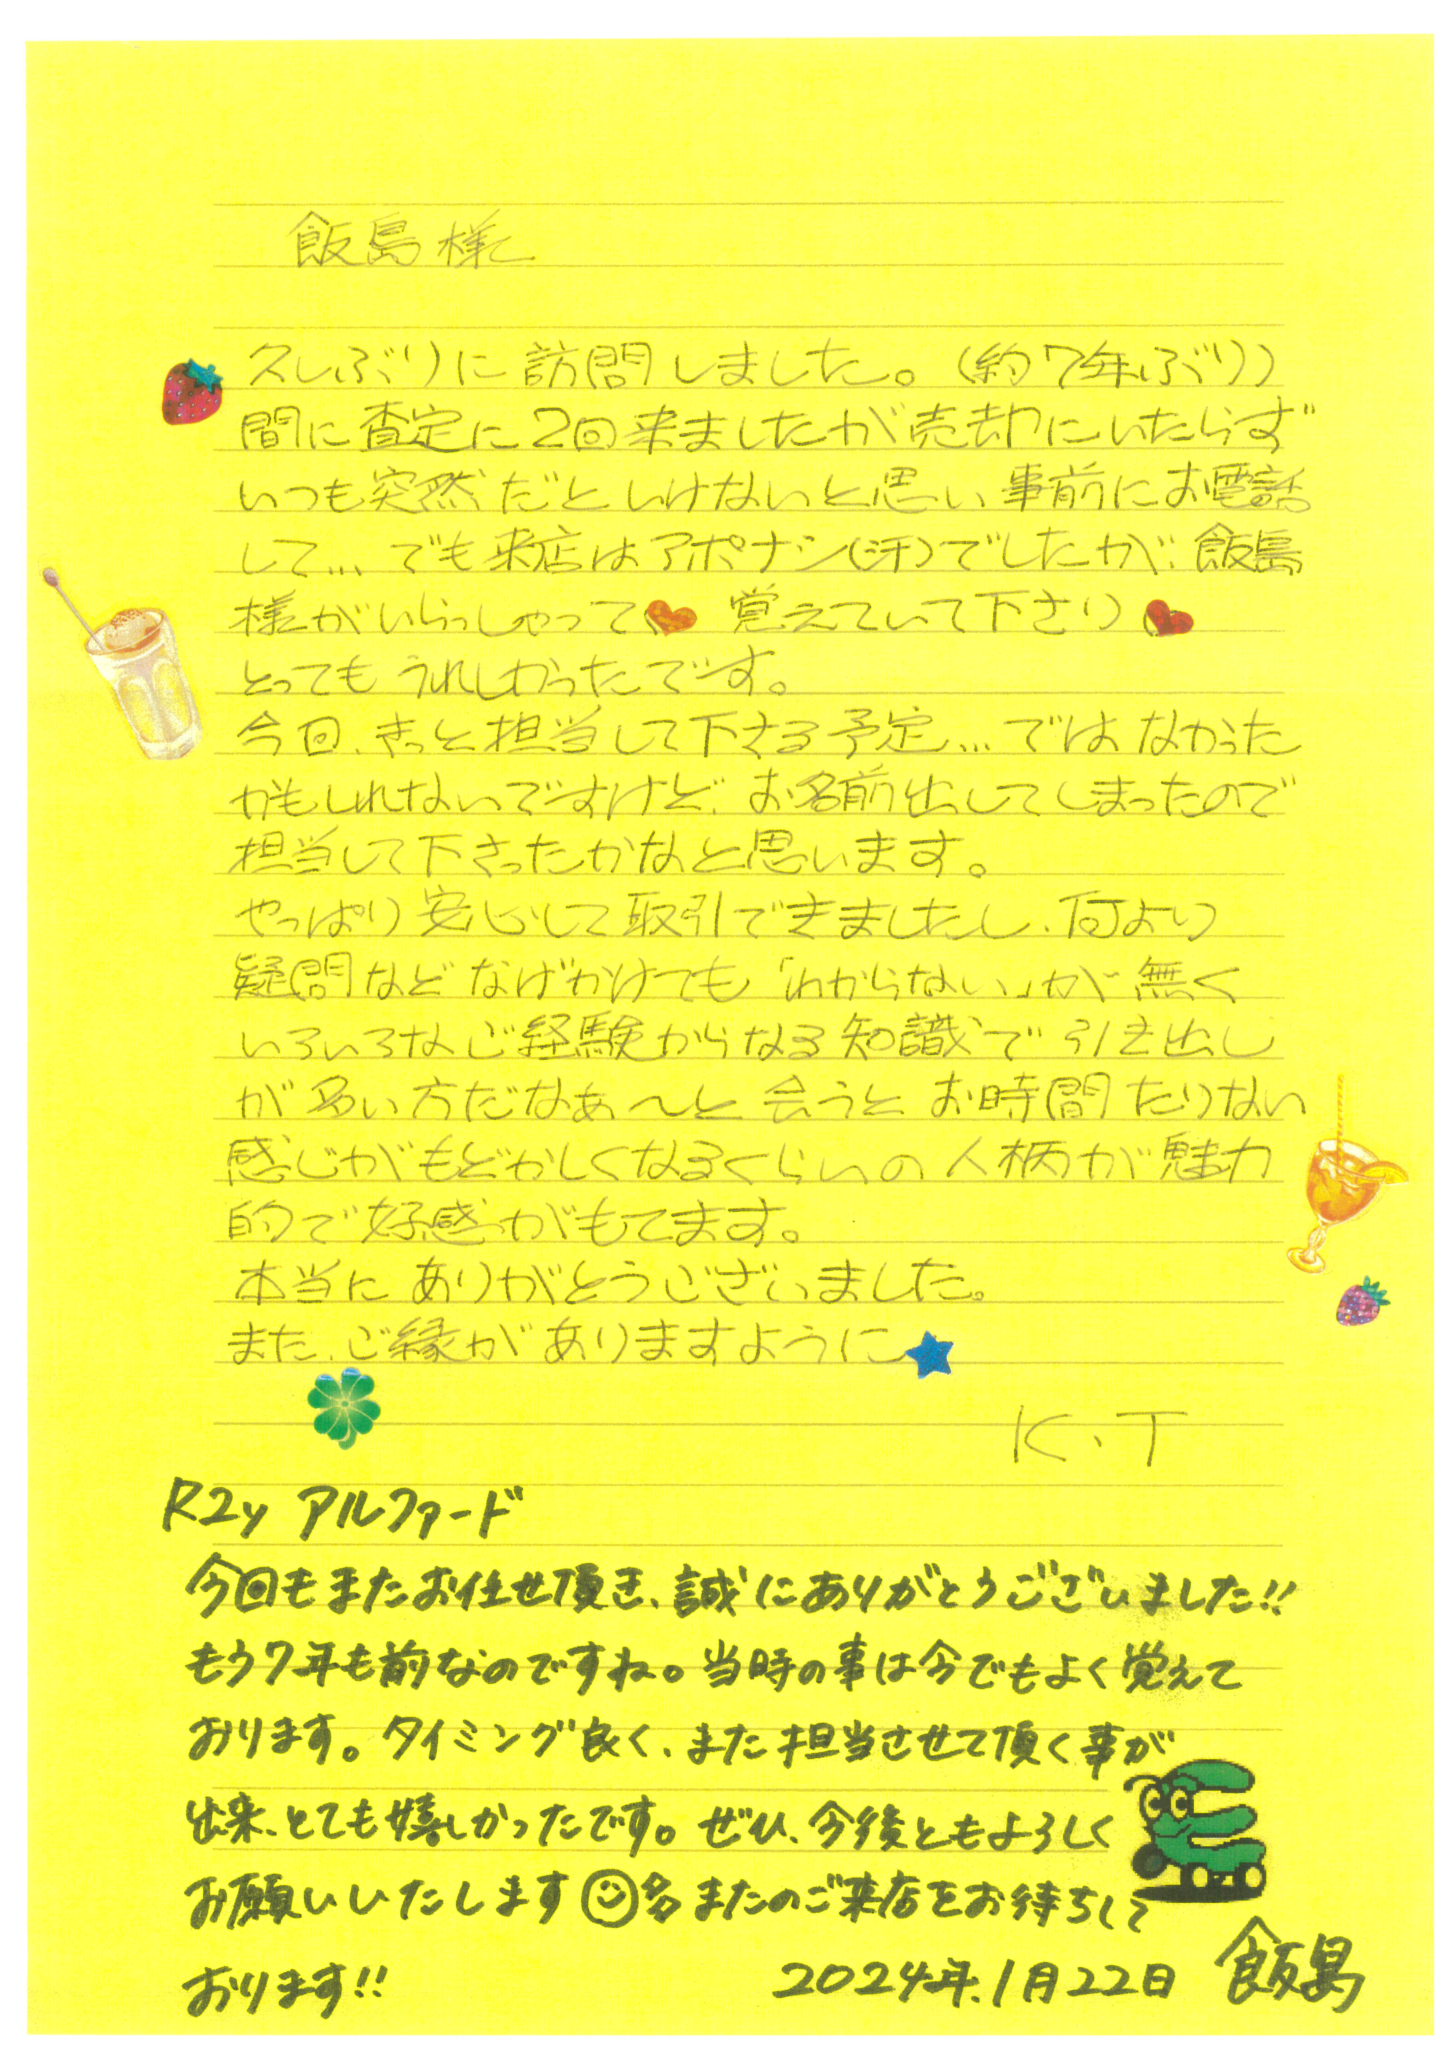 飯島様
久しぶりに訪問しました。(約7年ぶり)
間に査定に2回来ましたが売却にいたらず
いつも突然だといけないと思い事前にお電話
して… でも来店はアポナシ(汗)でしたが、飯島
様がいらっしゃって 覚えていて下さり
とってもうれしかったです。
今回、きっと担当して下さる予定…ではなかった
かもしれないですけど、お名前出してしまったので
担当して下さったかなと思います。
やっぱり安心して取引できましたし、何より
疑問などなげかけても「わからない」が無く
いろいろなご経験からなる知識で引き出し
が多い方だなあ〜と会うとお時間たりない
感じがもどかしくなるくらいの人柄が魅力
的で好感がもてます。
本当にありがとうございました。
また、ご縁がありますように
K.T
R2y アルファード
今回もまたお任せ頂き、誠にありがとうございました!!
もう7年も前なのですね。当時の事は今でもよく覚えて
おります。タイミング良く、また担当させて頂く事が
出来、とても嬉しかったです。ぜひ、今後ともよろしく
お願いいたします またのご来店をお待ちして
おります!!
2024年.1月22日 飯島